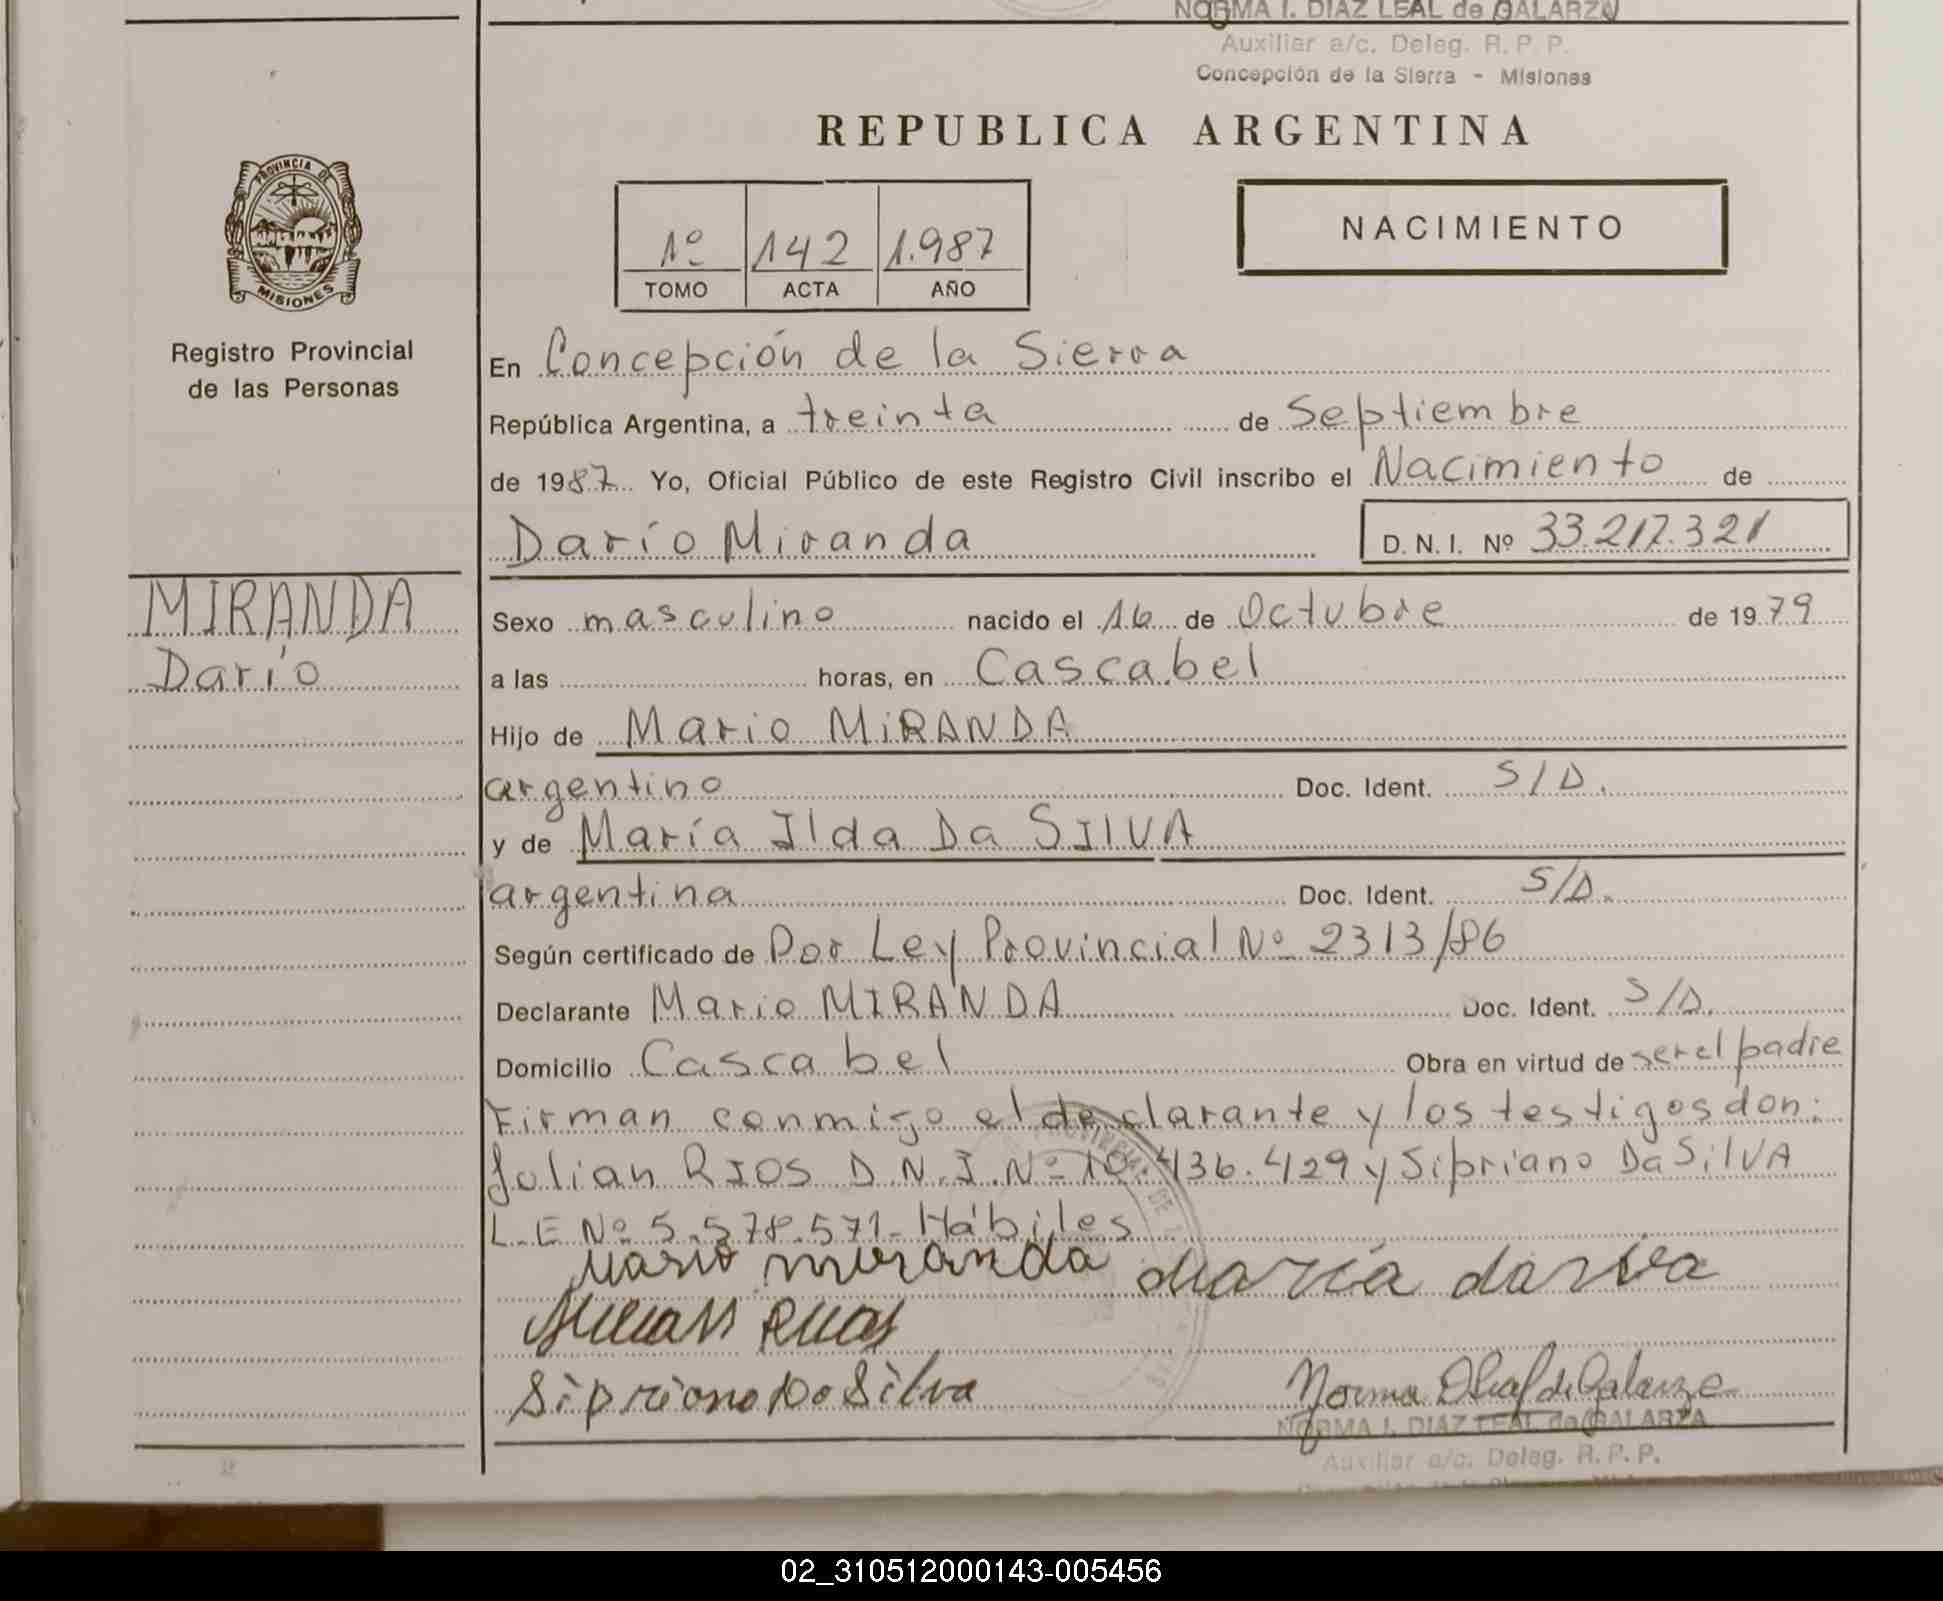 NORMA I. DIAZ LEAL de GALARZA
Auxiliar a/c. Deleg. R. P. P.
Concepción de la Sierra - Misiones
REPUBLICA ARGENTINA
PROVINCIA DE
MISIONES
Registro Provincial
de las Personas
1º 142 1.987
TOMO ACTA AÑO
NACIMIENTO
En Concepción de la Sierra
República Argentina, a treinta de Septiembre
de 1987. Yo, Oficial Público de este Registro Civil inscribo el Nacimiento de
Darío Miranda D. N. I. Nº 33.217.321
MIRANDA
Darío
Sexo masculino nacido el 16 de Octubre de 1979
a las horas, en Cascabel
Hijo de Mario MiRANDA
argentino Doc. Ident. S/D.
y de María Ilda Da SILVA
argentina Doc. Ident. S/D.
Según certificado de Por Ley Provincial Nº 2313/86
Declarante Mario MIRANDA Doc. Ident. S/D.
Domicilio Cascabel Obra en virtud de ser el padre
Firman conmigo el declarante y los testigos don:
Julian RIOS D.N.I. Nº 10.436.429 y Sipriano Da SilVA
L.E Nº 5.578.571- Hábiles
Mario miranda María dasilva
Sipriano Da Silva
Norma D Leal de Galarza
NORMA I. DIAZ LEAL de GALARZA
Auxiliar a/c. Deleg. R. P. P.
02_310512000143-005456